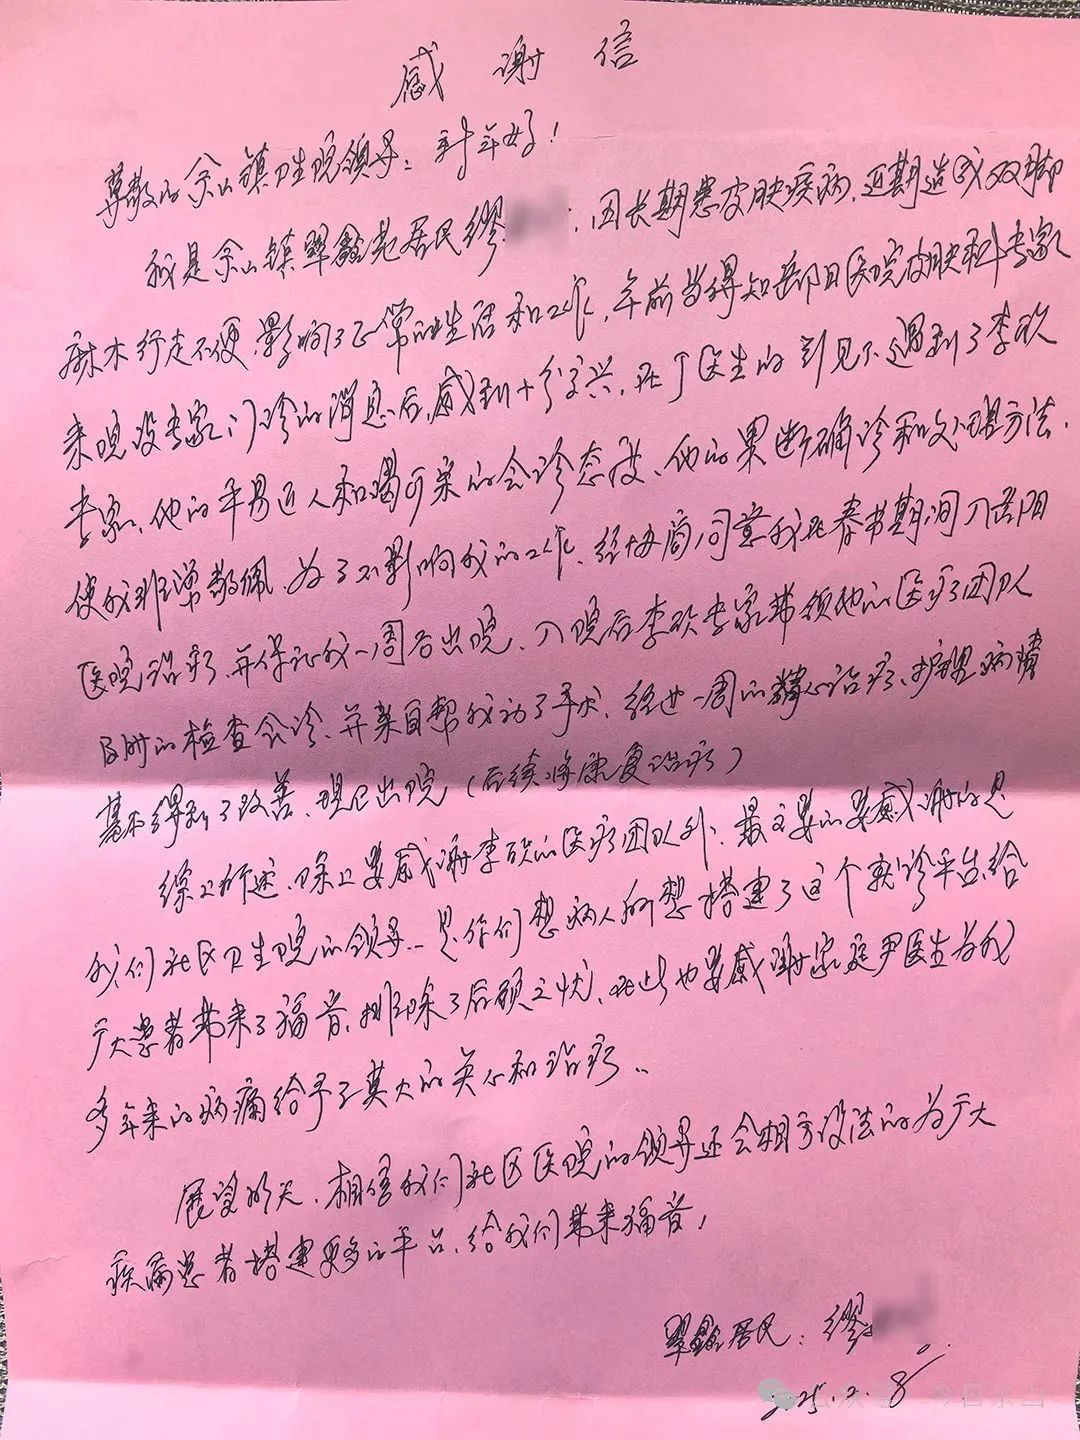 感谢信
尊敬的佘山镇卫生院领导：新年好！
我是佘山镇翠鑫苑居民缪 ，因长期患皮肤疾病，近期造成双脚
麻木行走不便，影响了正常的生活和工作，年前当得知岳阳医院皮肤科专家
来院设专家门诊的消息后，感到十分高兴，在丁医生的引见下遇到了李欣
专家、他的平易近人和蔼可亲的会诊态度、他的果断确诊和处理方法，
使我非常敬佩，为了不影响我的工作、经协商同意我在春节期间入岳阳
医院治疗、并保证我一周后出院、入院后李欣专家带领他的医疗团队
及时的检查会诊、并亲自帮我动了手术，经过一周的精心治疗、护理病情
基本得到了改善、现已出院（后续将康复治疗）
综上所述、除上要感谢李欣的医疗团队外；最主要的要感谢的是
我们社区卫生院的领导、是你们想病人所想搭建了这个就诊平台，给
广大患者带来了福音，排除了后顾之忧、在此也要感谢家庭尹医生为我
多年来的病痛给予了莫大的关心和治疗..
展望明天，相信我们社区医院的领导还会想方设法的为广大
疾病患者搭建更多的平台，给我们带来福音，
翠鑫居民：缪
2025.2.8
公众号 · 今日佘山